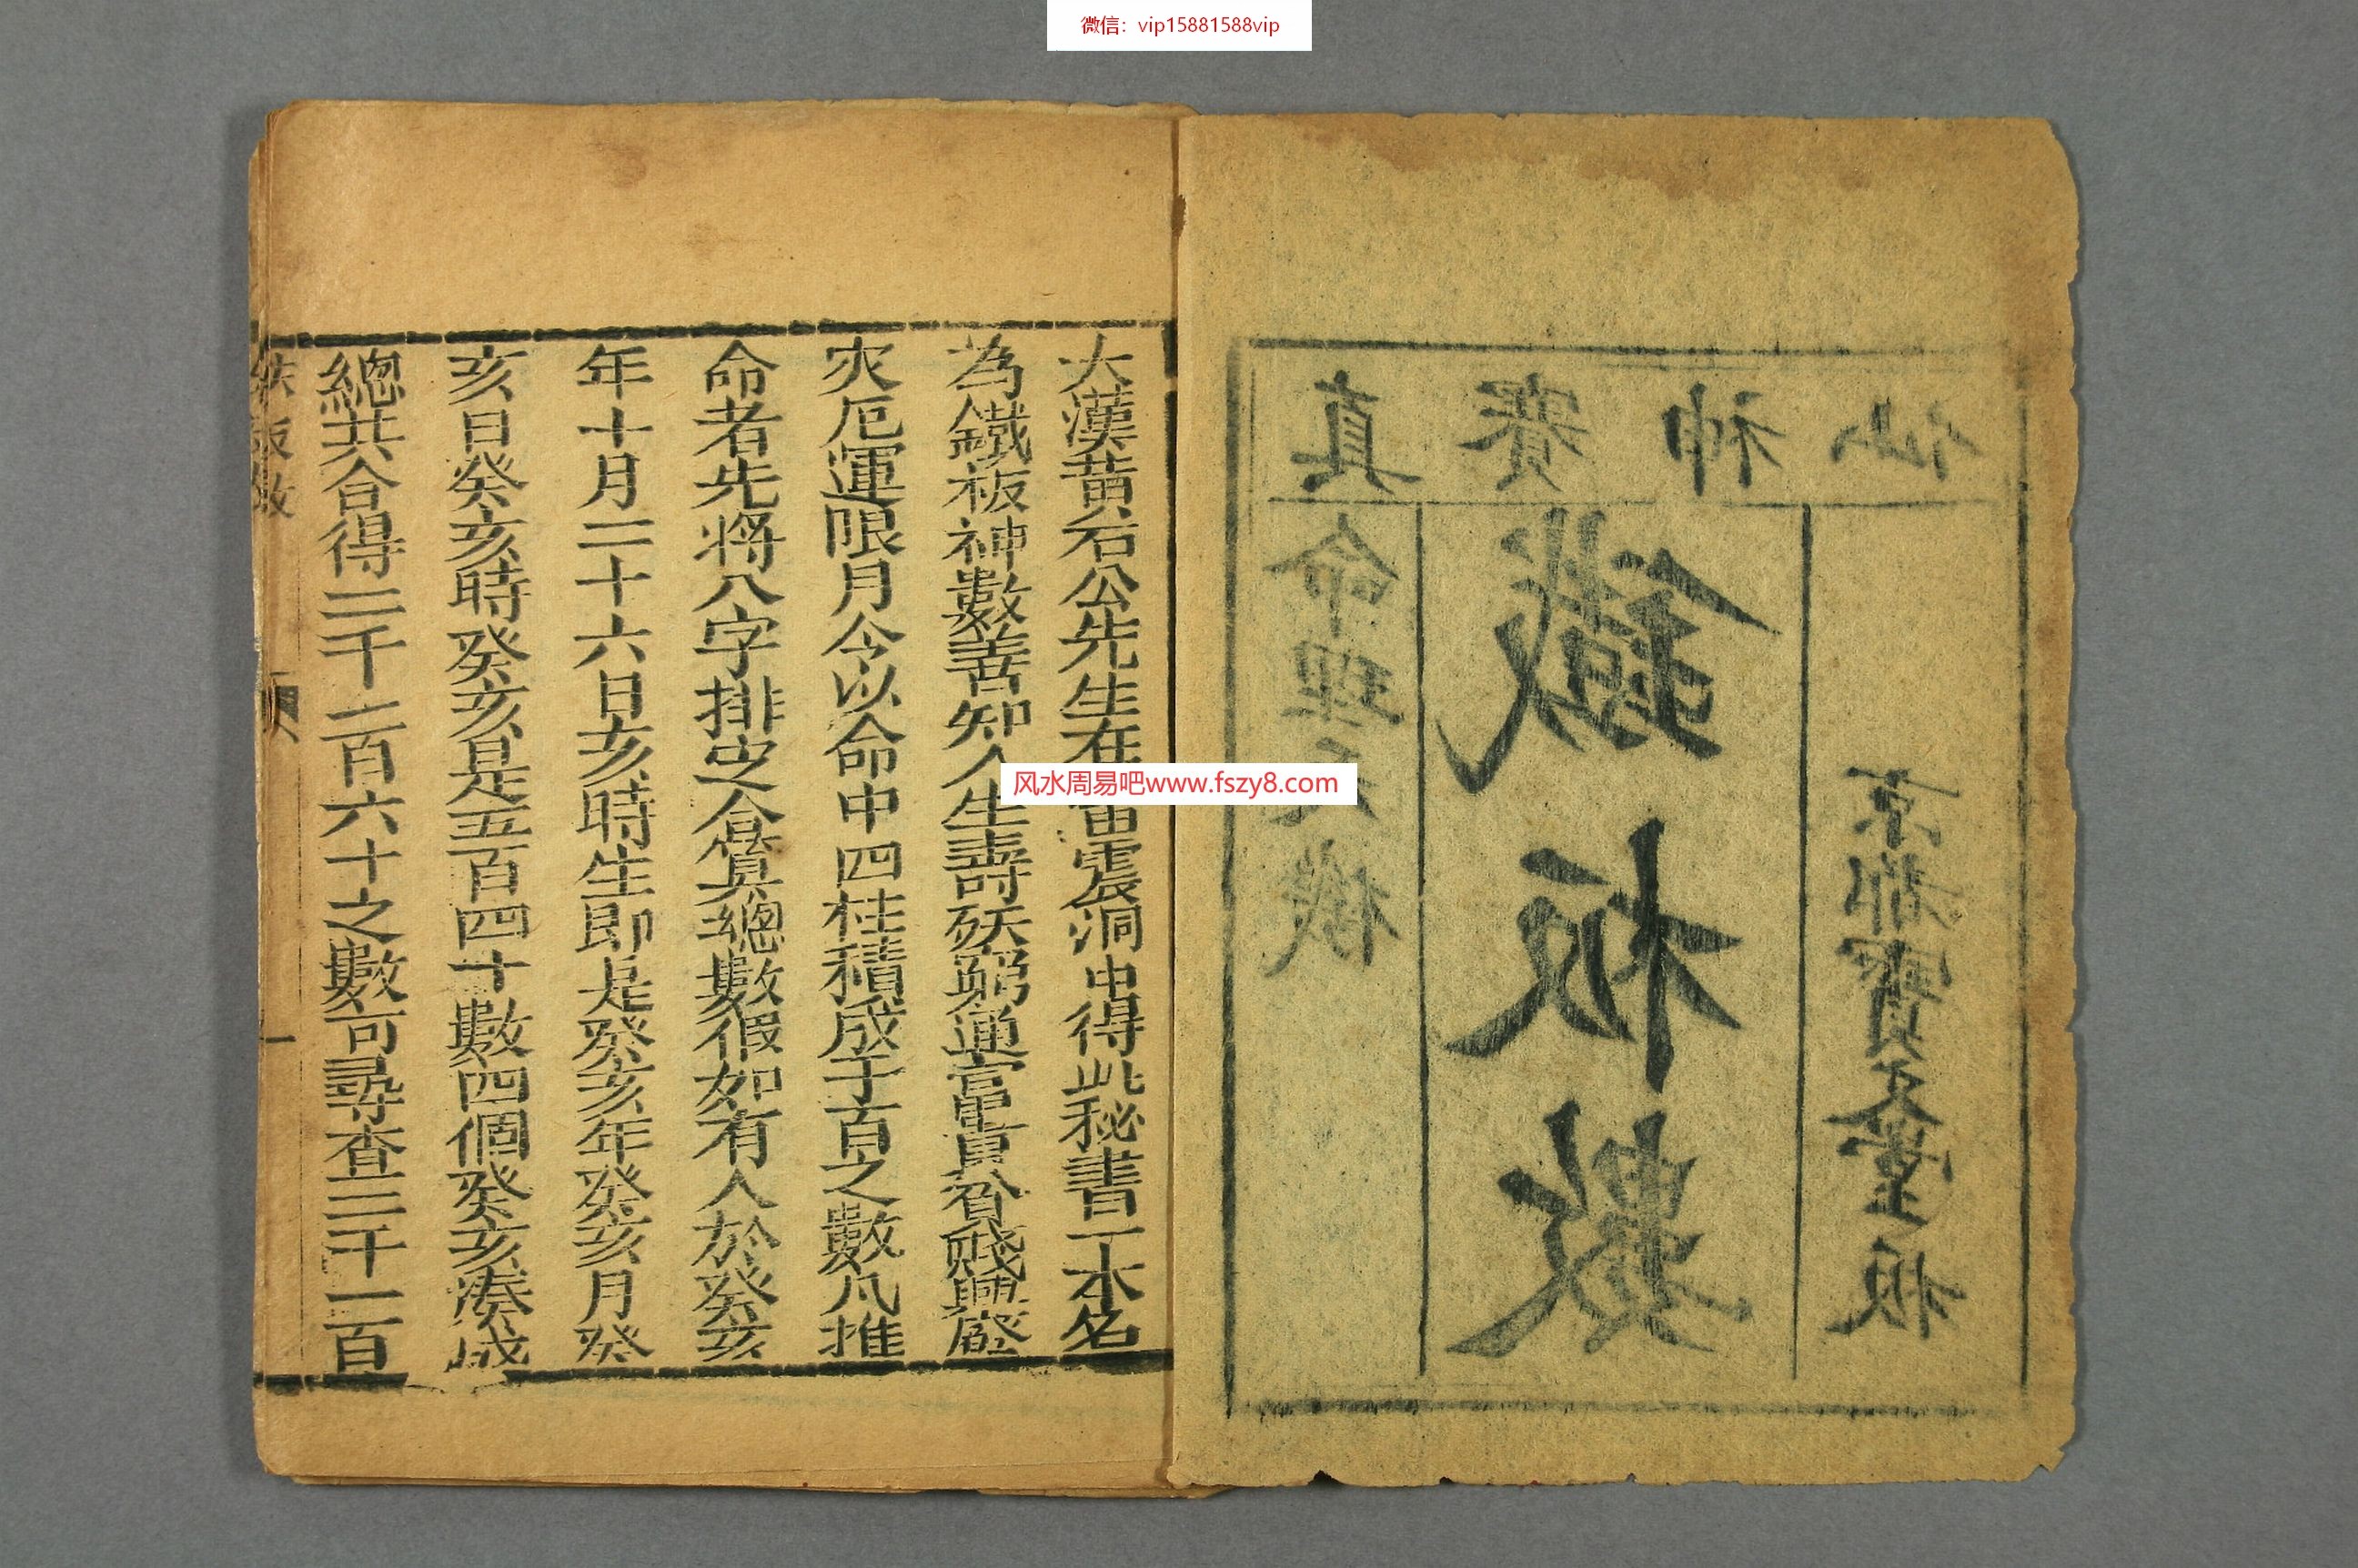 微信：vip15881588vip
真賽神仙
命理天機
鐵板數
京都寶文堂板
大漢黃石公先生在雷震洞中得此秘書一本名
為鐵板神數善知人生壽殀窮通富貴貧賤興廢
灾厄運限月令以命中四柱積成千百之數凡推
命者先將八字排定合算總數假如有人於癸亥
年十月二十六日亥時生即是癸亥年癸亥月癸
亥日癸亥時癸亥是五百四十數四個癸亥湊成
總共合得二千一百六十之數可尋查二千一百
鉄板數 一
风水周易吧www.fszy8.com